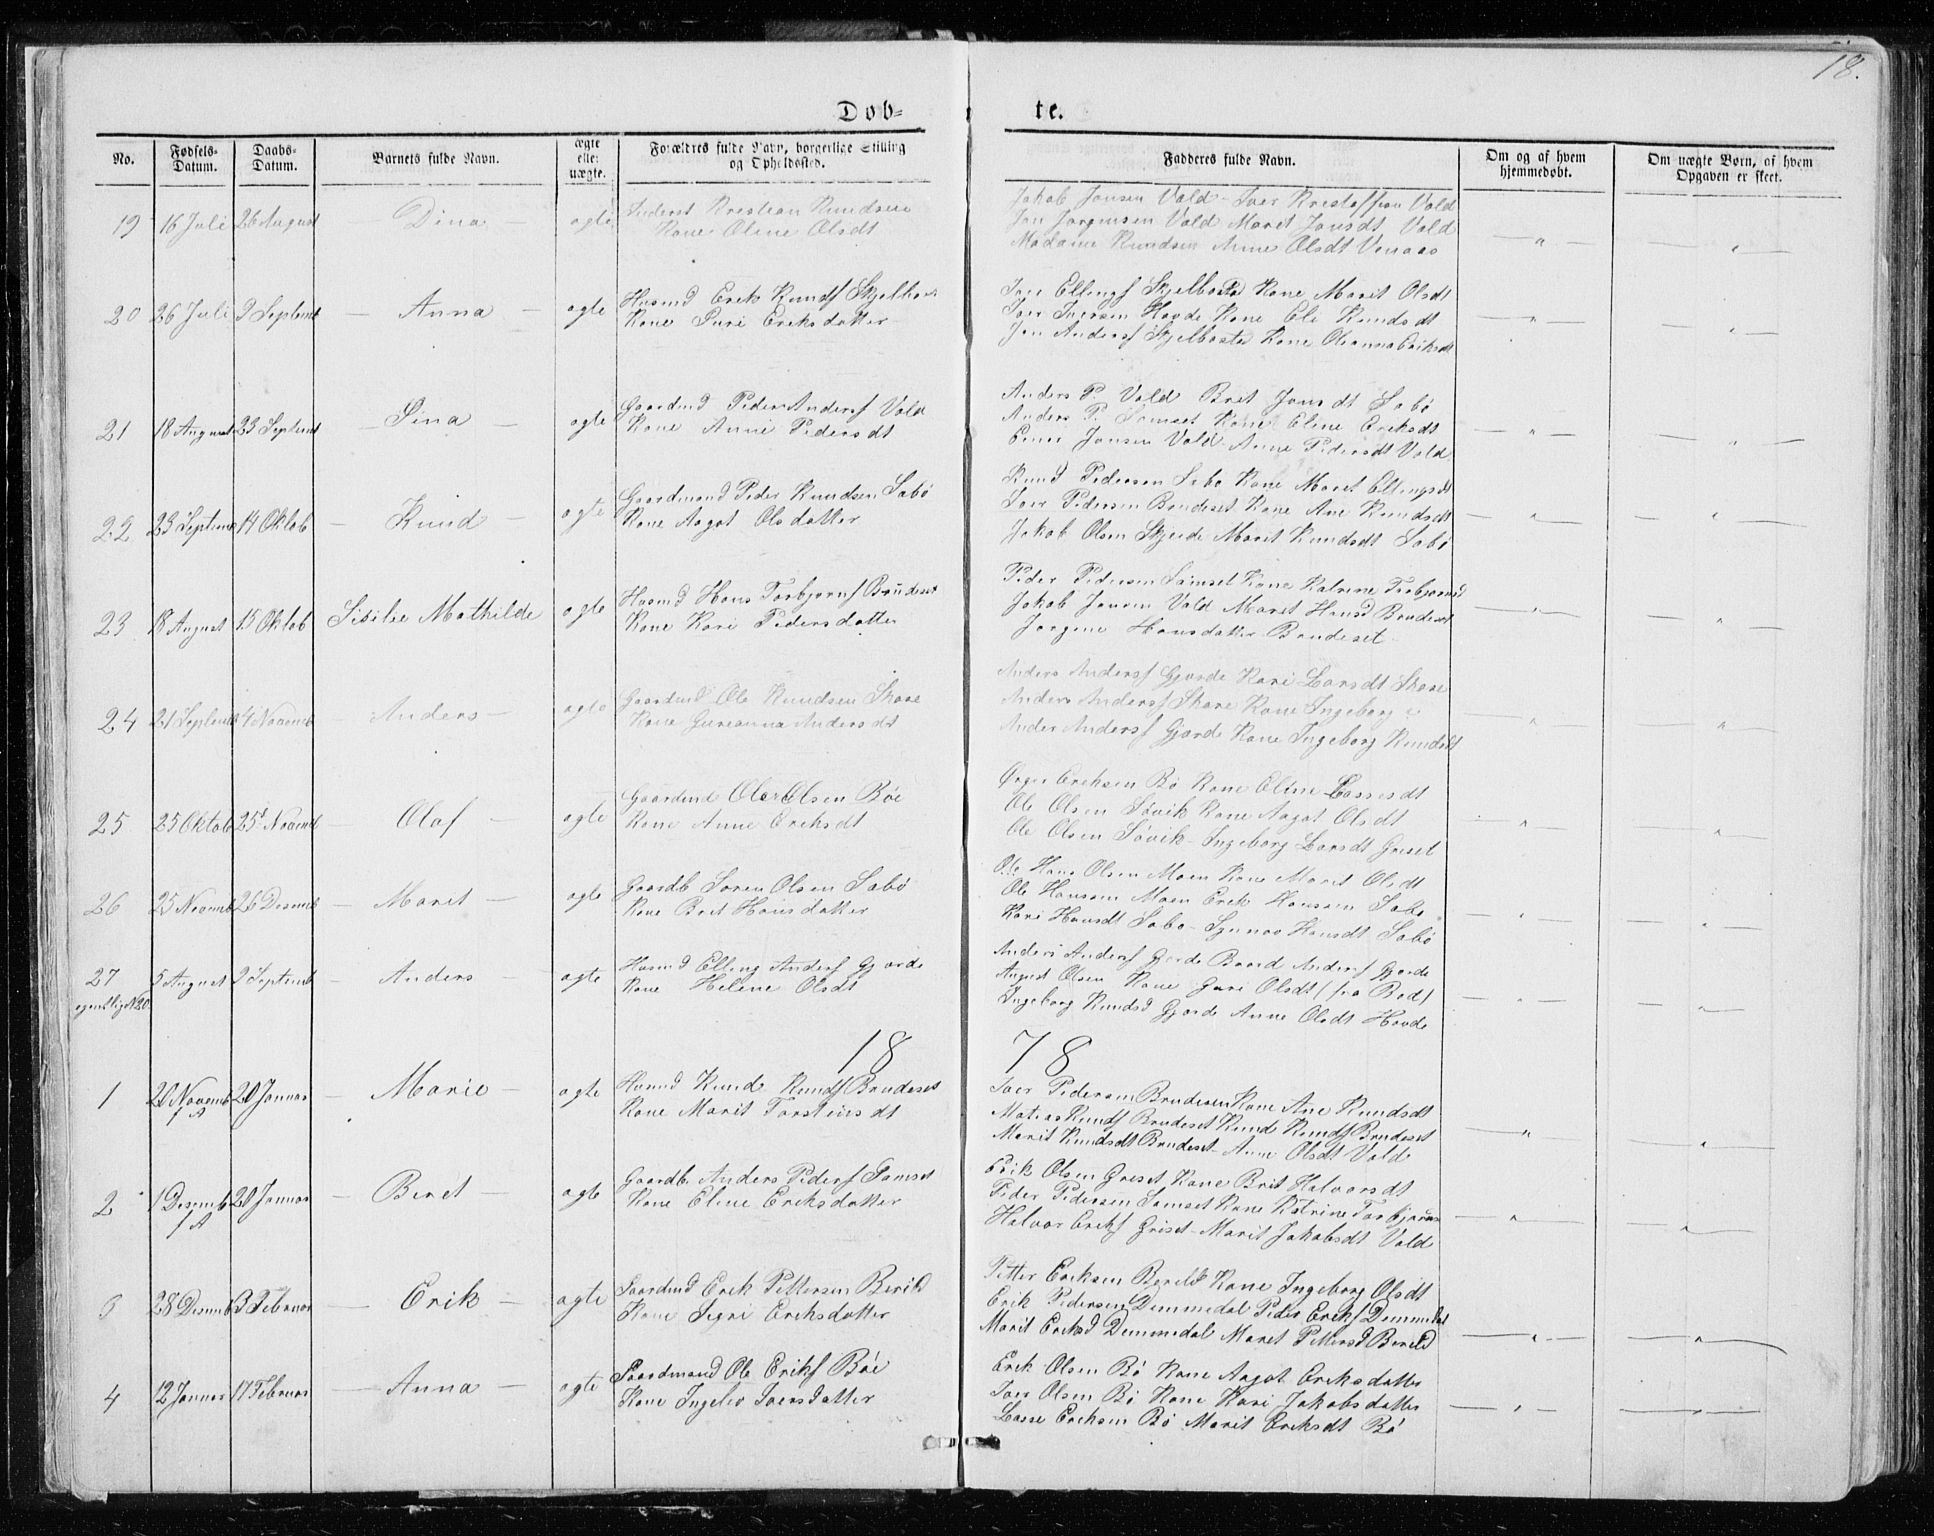 18.
Døb-
te.
No.
Fødsels-Datum.
Daabs-Datum.
Barnets fulde Navn.
ægte eller uægte.
Forældres fulde Navn, borgerlige Stilling og Opholdssted.
Fadderes fulde Navn.
Om og af hvem hjemmedøbt.
Om uægte Børn, af hvem Opgaven er skeet.
19 16 Juli 26 August Dina ægte
Krestian Knudsen
Kone Oline Olsdt
Jakob Jonsen Vold - Iver Krestoffsen Vold
Jon Jørgensen Vold Marit Jonsdt Vold
Madame Knudsen Anne Olsdt Venaas
20 26 Juli 2 Septemb Anna ægte
Husmd Erik Knuds Skjelbost
Kone Guri Eriksdatter
Iver Ellings Skjelboste Kone Marit Olsdt
Iver Iversen Hovde Kone Eli Knudsdt
Jon Anders Skjelboste Kone Oleanna Eriksdt
21 18 August 23 Septemb Sina ægte
Gaardmd Peder Anders Vold
Kone Anne Pedersdt
Anders P. Vold Bret Jonsdt Sæbø
Anders P. Samset Kone Eline Eriksdt
Einer Jonsen Vold - Anne Pedersdt Vold
22 23 Septemb 14 Oktob Knud ægte
Gaardmand Peder Knudsen Sæbø
Kone Aagot Olsdatter
Knud Pedersen Sæbø Kone Maret Ellingsdt
Iver Pedersen Brudeset Kone Ane Knudsdt
Jakob Olsen Skjeide Marit Knudsdt Sæbø
23 18 August 15 Oktob Sisilie Mathilde ægte
Husmd Hans Torbjørns Brudeset
Kone Kari Pedersdatter
Peder Pedersen Samset Kone Katrine Torbjørnsd
Jakob Jonsen Vold Maret Hansd Brudeset
Jørgine Hansdatter Brudeset
24 21 Septemb 4 Novemb Anders ægte
Gaardmd Ole Knudsen Skare
Kone Gurianna Andersdt
Anders Anders Gjørde Kari Larsdt Skare
Anders Anders Skare Kone Ingeborg
Anders Anders Gjørde Kone Ingeborg Knudsdt
25 25 Oktob 25 Novemb Olaf ægte
Gaardmd Ole Olsen Bøe
Kone Anne Eriksdt
Eriksen Bø Kone Eline Lassesdt
Ole Olsen Søvik Kone Aagot Olsdt
Ole Olsen Søvik - Ingeborg Larsdt Griset
26 25 Novemb 26 Desemb Marit ægte
Gaardb Søren Olsen Sæbø
Kone Bret Hansdatter
Hans Olsen Moen Kone Marit Olsdt
Ole Hansen Moen Erik Hansen Sæbø
Kari Hansdt Sæbø - Synnøv Hansdt Sæbø
27 egentlig No 20. 5 August 2 Septemb Anders ægte
Husmd Elling Anders Gjørde
Kone Helene Olsdt
Anders Anders Gjørde Baard Anders Gjørde
August Olsen Kone Guri Olsdt (fra Bod)
Ingeborg Knudsd Gjørde Anne Olsdt Hovde
18
78
1 20 Novemb f A 20 Januar Marie ægte
Husmd Knud Knuds Brudeset
Kone Marit Torstensdt
Iver Pedersen Brudeset Kone Ane Knudsdt
Matias Knuds Brudeset Knud Knuds Brudeset
Marit Knudsdt Brudeset - Anne Olsdt Vold
2 1 Desemb f A 20 Januar Beret ægte
Gaardb Anders Peders Samset
Kone Eline Eriksdatter
Erik Olsen Griset Kone Brit Halvorsdt
Peder Pedersen Samset Kone Katrine Torbjørns
Halvor Eriks Griset - Marit Jakobsdt Vold
3 28 Desemb 3 Februar Erik ægte
Gaardmd Erik Pettersen Berild
Kone Segri Eriksdatter
Petter Eriksen Berild Kone Ingeborg Olsdt
Erik Pedersen Demmedal Peder Eriks Demmedal
Marit Eriksd Demmedal Maret Pettersd Berild
4 12 Januar 17 Februar Anna ægte
Gaardmand Ole Eriks Bøe
Kone Ingelev Iversdatter
Erik Olsen Bø Kone Aagot Eriksdatter
Iver Olsen Bø Kone Kari Jakobsdatter
Lasse Eriksen Bø Marit Eriksdt Bø